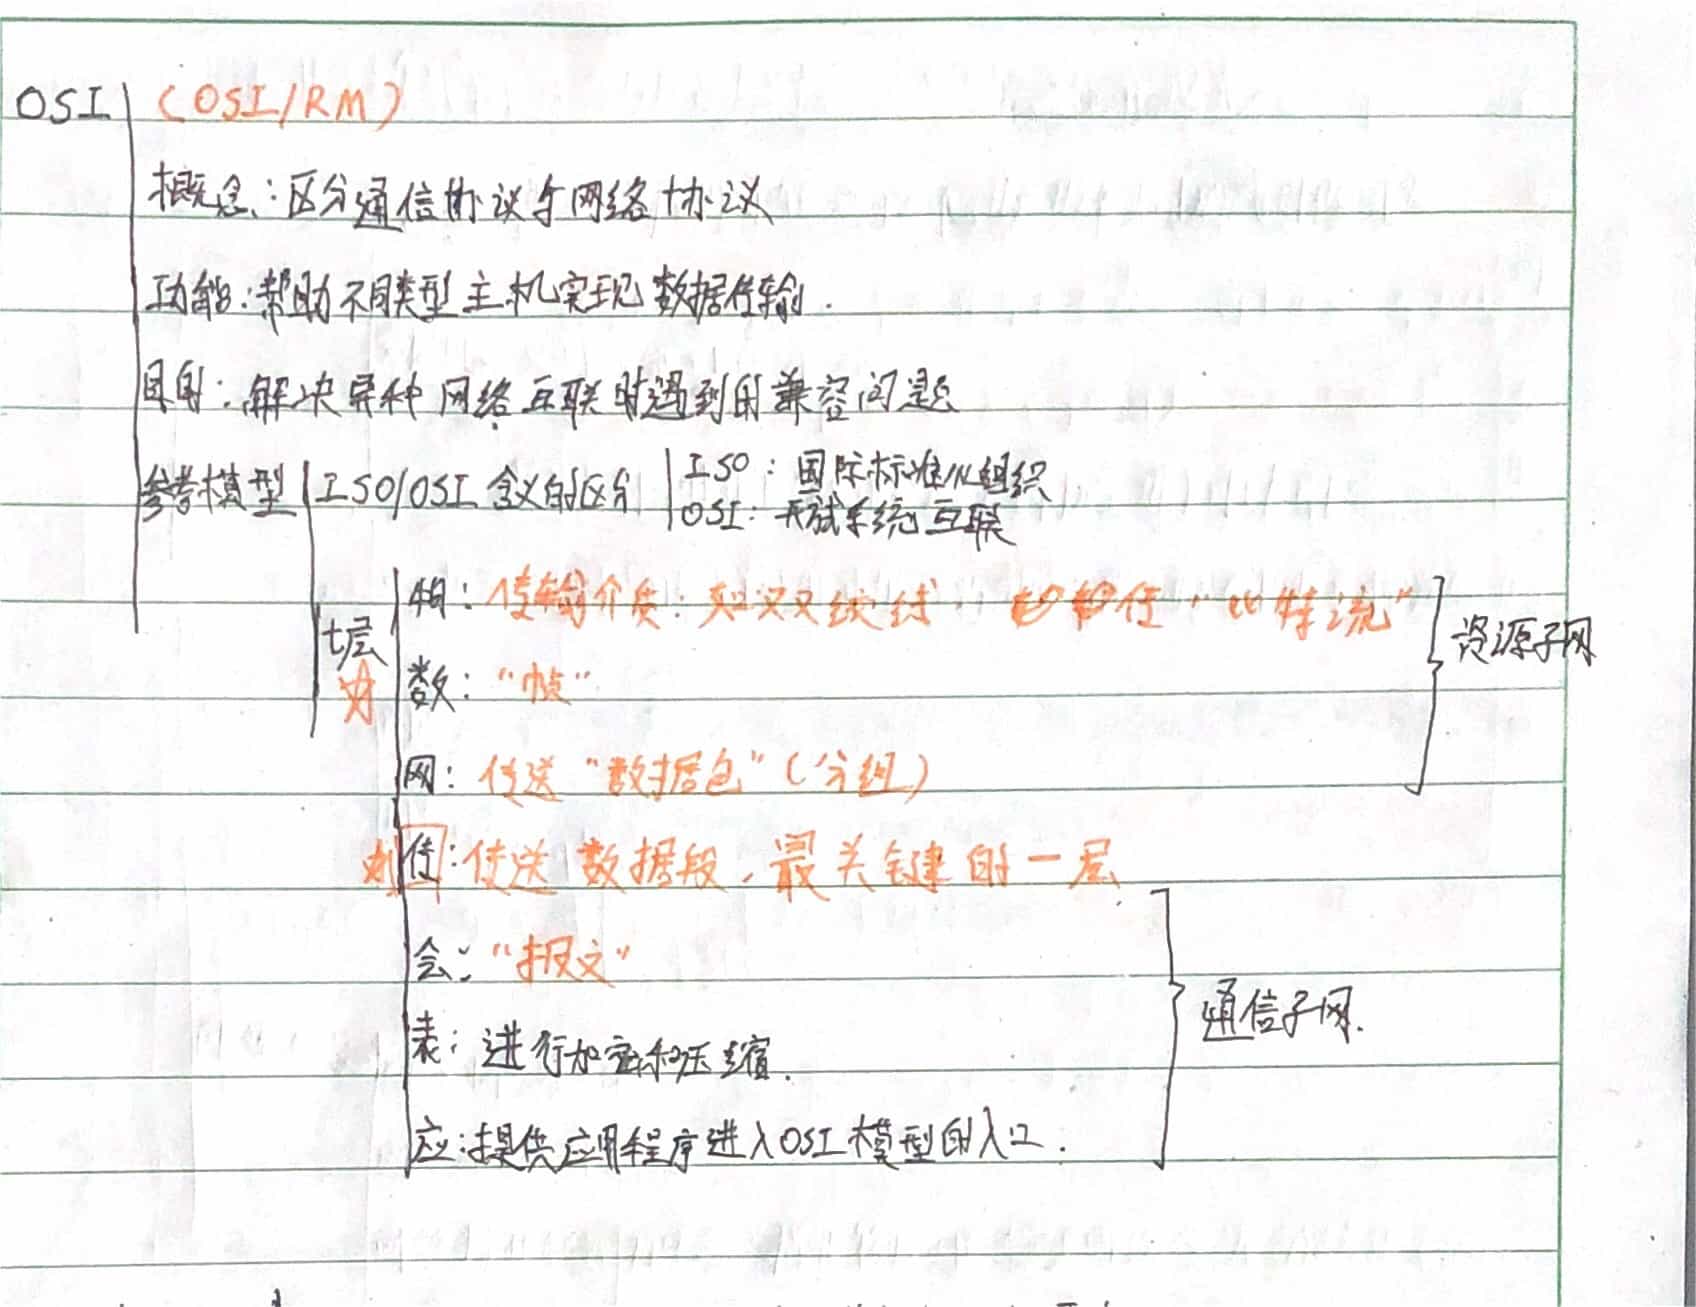 OSI (OSI/RM)
概念：区分通信协议与网络协议
功能：帮助不同类型主机实现数据传输.
目的：解决异种网络互联时遇到的兼容问题
参考模型 ISO/OSI 含义的区分 ISO：国际标准化组织
OSI：开放系统互联
七层
物：传输介质：如双绞线 传“比特流”
资源子网
数：“帧”
网：传送“数据包”(分组)
传：传送数据段，最关键的一层
会：“报文”
通信子网.
表：进行加密和压缩.
应：提供应用程序进入OSI模型的入口.